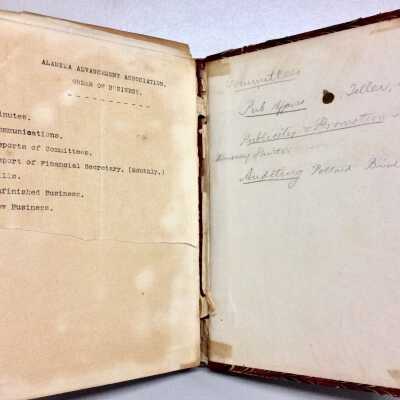 ALAMEDA ADVANCEMENT ASSOCIATION.
ORDER OF BUSINESS.
inutes.
ommunications.
eports of Committees.
eport of Financial Secretary. (Monthly.)
ills.
nfinished Business.
ew Business.
Committees
Pub Affairs Teller,
Publicity & Promotion
Auditing Pollard